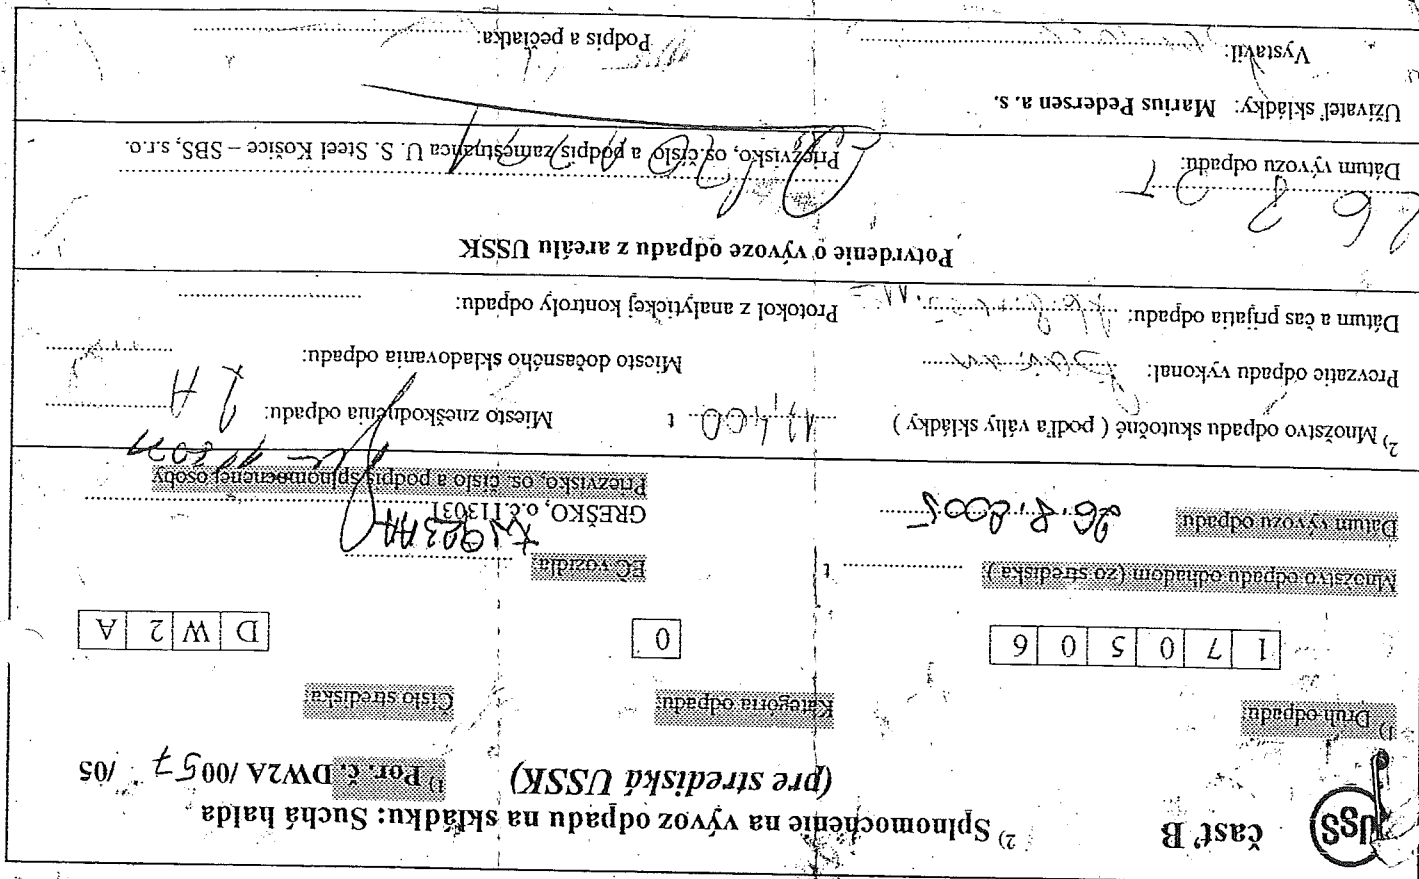 USS
časť B
2) Splnomocnenie na vývoz odpadu na skládku: Suchá halda
(pre strediská USSK)
1) Por. č. DW2A/0057 /05
1) Druh odpadu:
Kategória odpadu:
Číslo strediska:
1 7 0 5 0 6
0
D W 2 A
Množstvo odpadu odhadom (zo strediska) t
EČ vozidla:
Dátum vývozu odpadu 26.8.2005
GREŠKO, o.č.113031
Priezvisko, os. číslo a podpis splnomocnenej osoby
2) Množstvo odpadu skutočné ( podľa váhy skládky ) t
Miesto zneškodnenia odpadu: 2A
Prevzatie odpadu vykonal:
Miesto dočasného skladovania odpadu:
Dátum a čas prijatia odpadu:
Protokol z analytickej kontroly odpadu:
Potvrdenie o vývoze odpadu z areálu USSK
Dátum vývozu odpadu:
Priezvisko, os.číslo a podpis zamestnanca U. S. Steel Košice – SBS, s.r.o.
Užívateľ skládky: Marius Pedersen a. s.
Vystavil:
Podpis a pečiatka: